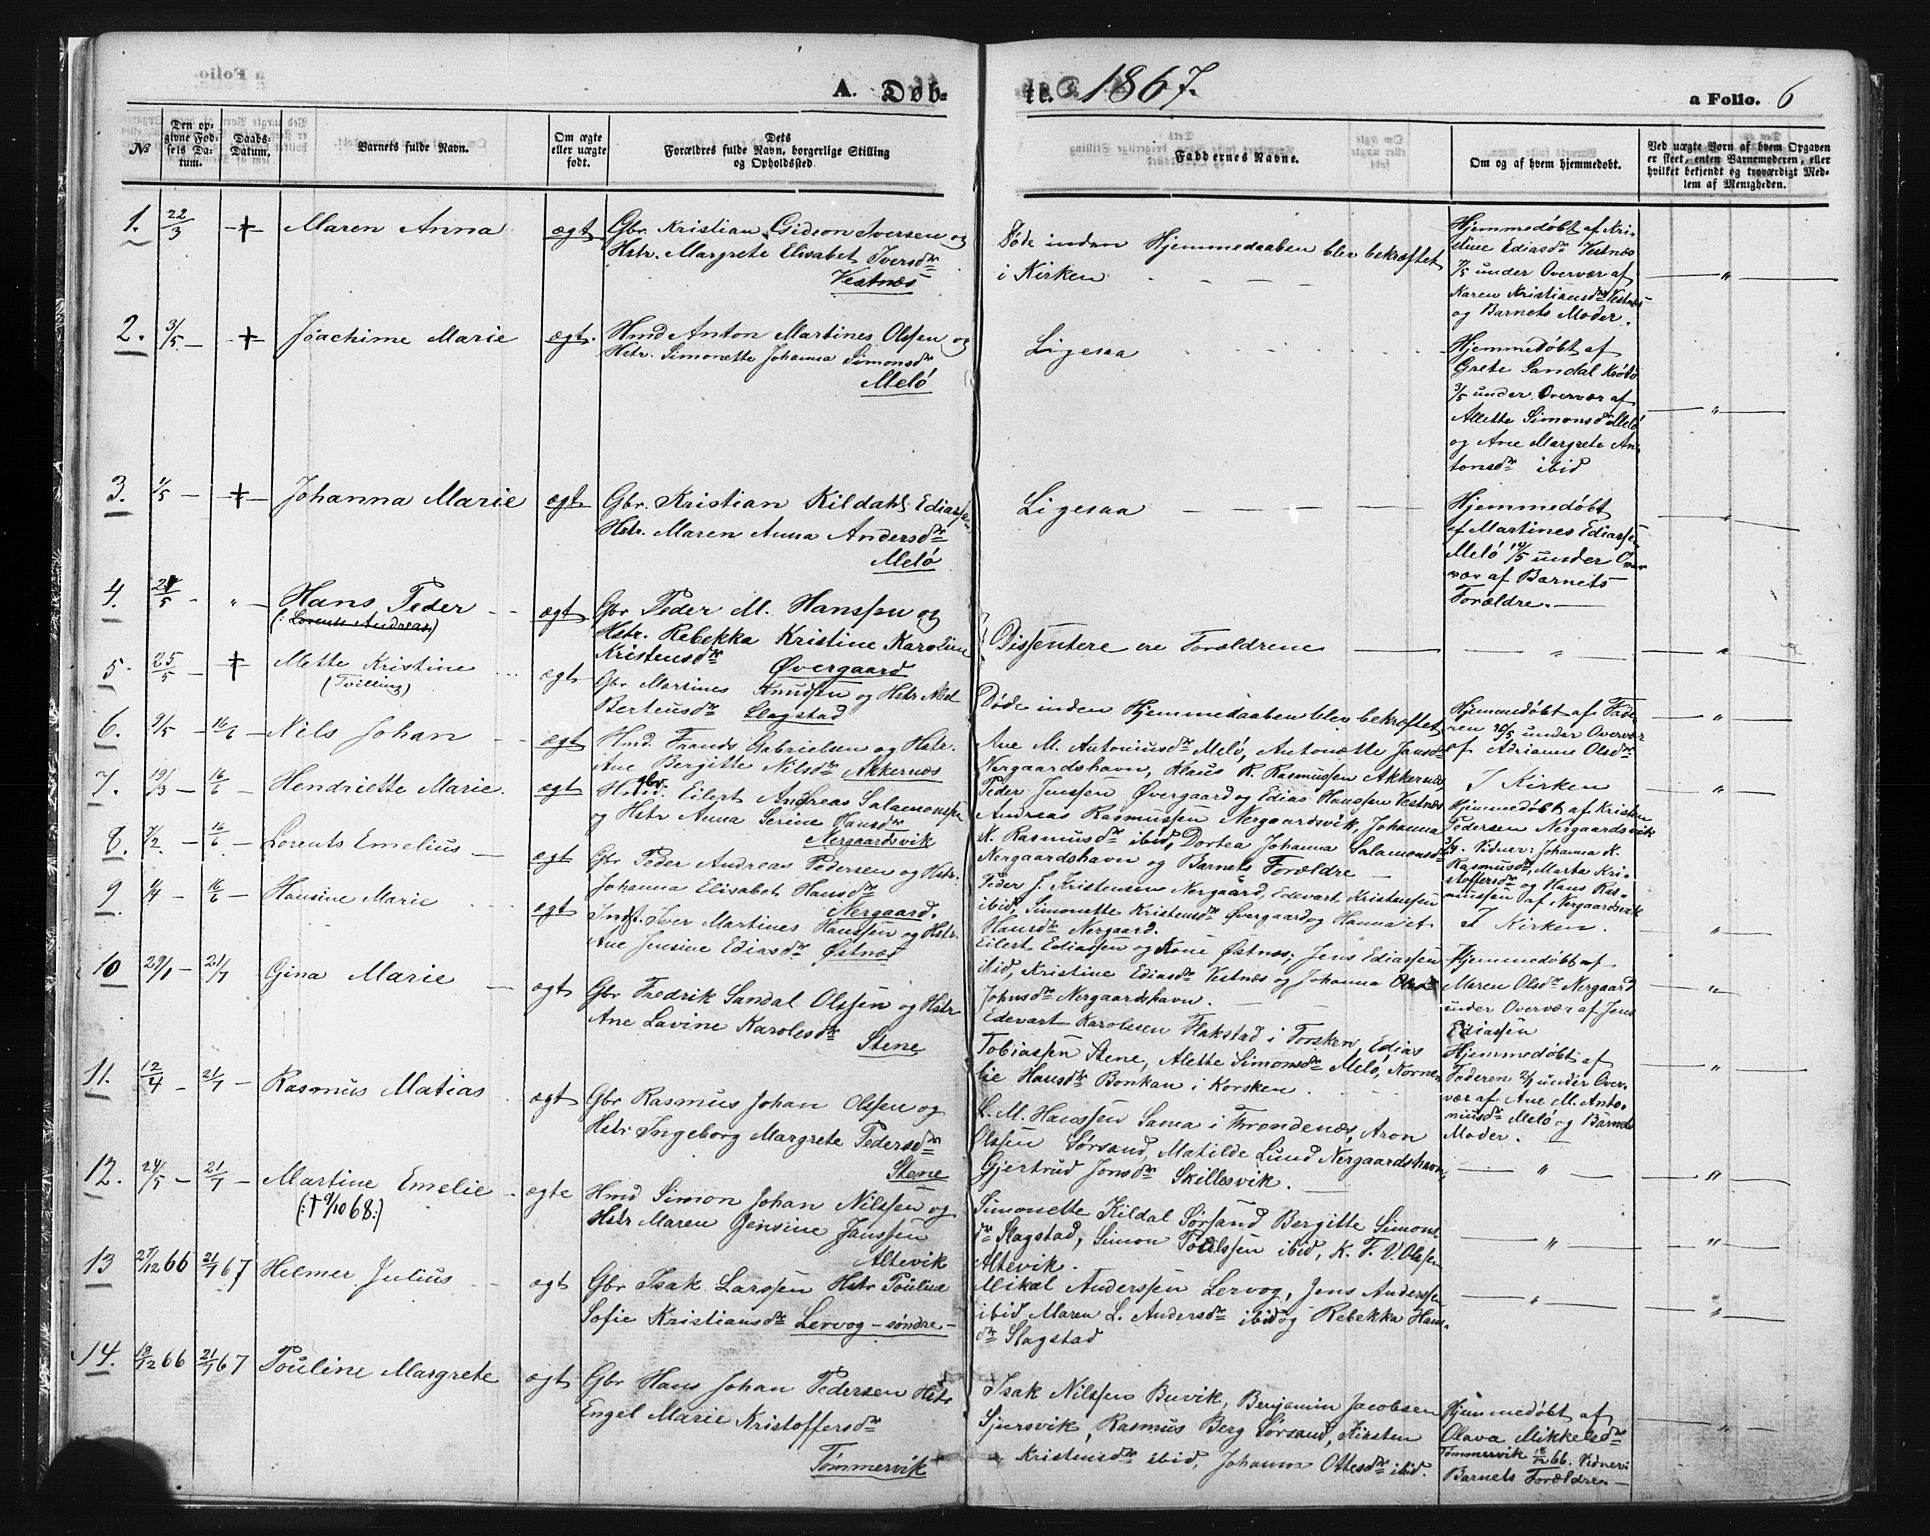 A. Døb-
te. 1867.
a Folio. 6
No
Den opgivne Fødsels Datum.
Daabs-Datum.
Barnets fulde Navn.
Om ægte eller uægte født.
Dets Forældres fulde Navn, borgerlige Stilling og Opholdssted.
Faddernes Navne.
Om og af hvem hjemmedøbt.
Ved uægte Børn af hvem Opgaven er skeet, enten Barnemoderen, eller hvilket bekjendt og troværdigt Medlem af Menigheden.
1. 22/3 † Maren Anna ægt Gbr. Kristian Gideon Iversen og
Hstr. Margrete Elisabet Iversdr
Vestnæs
Døde inden Hjemmedaaben blev bekræftet
i Kirken
Hjemmedøbt af Kri-
stine Ediasdr Vestnæs
7/5 under Overvær af
Karen Kristiansdr Vestnæs
og Barnets Moder.
2. 3/5 † Joachime Marie ægt. Hmd Anton Martines Olssen og
Hstr. Simonette Johanna Simonsdr
Melö
Ligesaa
Hjemmedøbt af
Grete Sandal Krötö
3/5 under Overvær af
Allette Simonsdr Melö
og Ane Margrete An-
tonsdr ibid
3. 1/5 † Johanna Marie ægt. Gbr. Kristian Kildahl Ediassen
Hstr. Maren Anna Andersdr
Melö
Ligesaa
Hjemmedøbt
af Martines Ediassen
Melö 10/5 under Over-
vær af Barnets
Forældre.
4. 24/5 " Hans Peder
(: Lorents Andreas:)
ægt Gbr Peder M. Hanssen og
Hstr. Rebekka Kristine Karoline
Kristensdr Øvergaard
Dissentere ere Forældrene
5. 25/5 † Mette Kristine
(Tvilling)
ægt Gbr Martines Knudsen og Hstr
Berteusdr Slagstad
Døde inden Hjemmedaaben blev bekræftet
Hjemmedøbt af Fade-
ren 30/5 under Overvær
af Adrianne Olsdr
6. 9/5 16/6 Nils Johan ægt Hmd. Frands Gabrielsen og Hstr.
Ane Bergitte Nilsdr Akkernæs
Ane M. Antoniusdr Melö, Antonette Jansdr
Nergaardshavn, Klaus R. Rasmussen Akkernæs
I Kirken
7. 19/3 16/6 Hendriette Marie. ægt Gbr. Eilert Andreas Salamonssen
og Hstr Anna Serine Hansdr
Nergaardsvik
Peder Jenssen Øvergaard og Edias Hanssen Vestnæs
Andreas Rasmussen Nergaardsvik, Johanna
K. Rasmusdr ibid, Dortea Johanna Salamonsdr
Nergaardshavn og Barnets Forældre
Hjemmedøbt af Kristen
Pedersen Nergaardsvik
Vidner: Johanna K.
Rasmusdr, Marta Kri-
stoffersdr og Hans Ras-
mussen af Nergaardsvik
8. 7/2 16/6 Lorents Emelius ægt Gbr Peder Andreas Pedersen og Hstr.
Johanna Elisabet Hansdr
Nergaard.
Peder J. Kristensen Nergaard, Edevart Kristensen
ibid, Simonette Kristensdr Øvergaard og Hanna
Hansdr Nergaard.
I Kirken.
9. 9/4 16/6 Hansine Marie ægt Indst. Iver Martines Hanssen og Hstr.
Ane Jensine Ediasdr Østnæs
Eilert Ediassen og Kone Østnæs; Jens Ediassen
ibid, Kristine Ediasdr Vestnæs og Johanna
Johnsdr Nergaardshavn.
Hjemmedøbt af
Maren Olsdr Nergaard
under Overvær af Jens
Ediassen
10 29/1 21/7 Gina Marie ægt Gbr Fredrik Sandal Olssen og Hstr
Ane Lavine Karolesdr
Stene
Edevart Karolesen Flakstad i Torsken, Edias
Tobiassen Stene, Alette Simonsdr Melö, Korne-
lie Hansdr Bonkan i Korsken.
Hjemmedøbt af
Faderen 2/1 under Over-
vær af Ane M. Anto-
niusdr Melö og Barnets
Moder.
11. 12/4 21/7 Rasmus Matias ægt Gbr Rasmus Johan Olssen og
Hstr Ingeborg Margrete Pedersdr
Stene
L. M. Hanssen Sama i Trondenæs, Aron
Olssen Sørsand, Matilde Lund Nergaardshavn,
Gjertrud Jonsdr Skillesvik.
12. 24/5 21/7 Martine Emelie
(:† 9/10 68:)
ægte Hmd Simon Johan Nilssen og
Hstr Maren Jensine Janssen
Altevik
Simonette Kildal Sørsand Bergitte Simons-
dr Slagstad, Simon Poulssen ibid, K. F. V. Olssen
Altevik.
13 27/12 66 21/7 67 Hilmer Julius ægt Gbr Isak Larssen Hstr Pouline
Sofie Kristiansdr Lervog-søndre-
Mikal Anderssen Lervog, Jens Anderssen
ibid Maren L. Andersdr ibid og Rebekka Hans-
dr Slagstad
14. 19/12 66 21/7 67 Pouline Margrete ægt Gbr Hans Johan Pedersen Hstr
Engel Marie Kristoffersdr
Tømmervik
Isak Nilssen Buvik, Benjamin Jacobsen
Sjursvik, Rasmus Berg Sørsand, Kirsten
Kristensdr ibid, Johanna Ottesdr ibid.
Hjemmedøbt af
Olava Mikkelsdr
Tømmervik 18/12 66. Vidner:
Barnets Forældre.